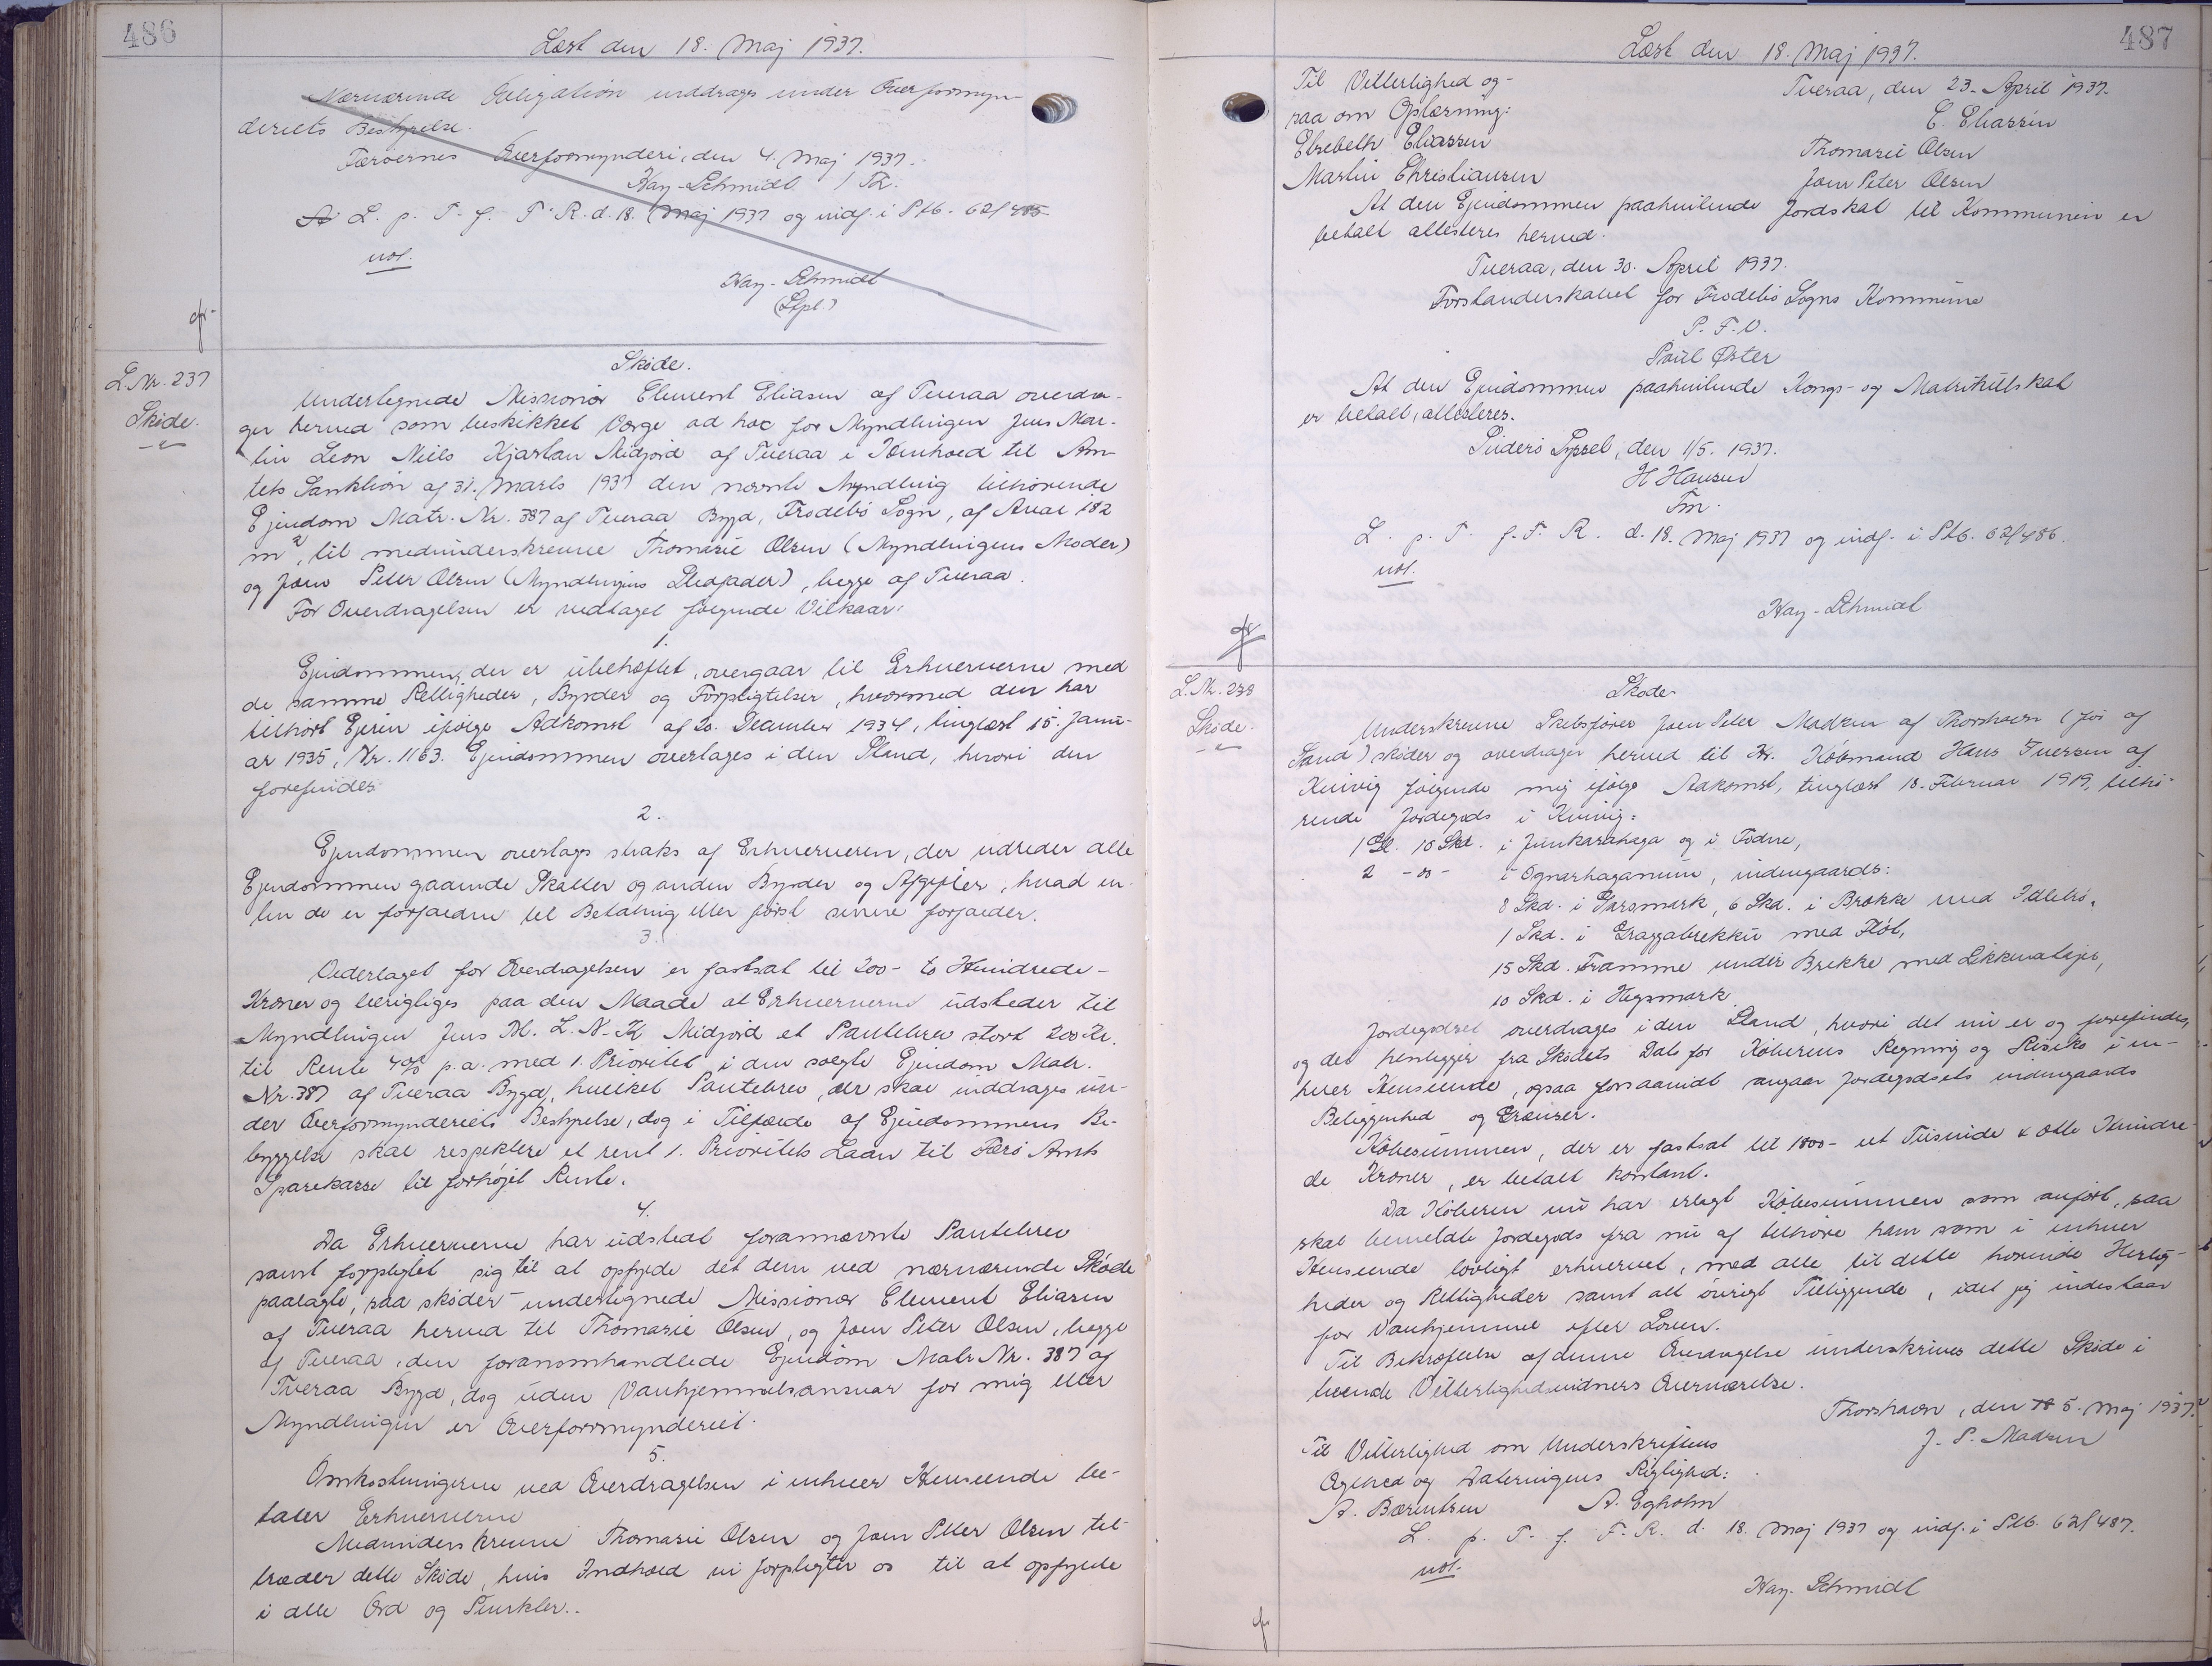 486
Læst den 18. Maj 1937.
Nærværende Obligation inddrages under Overformyn-
deriets Bestyrelse.
Færøernes Overformynderi, den 4. Maj 1937.
Kay-Schmidt / Th.
L. p. T. f. F. R. d. 18. Maj 1937 og indf. i Ptb. 62/485
not.
Kay-Schmidt
(Stpl.)
cfr.
L. Nr. 237
Skøde.
Skøde.
Undertegnede Missionær Clement Eliasen af Tveraa overdra-
ger herved som beskikket Værge ad hoc for Myndlingen Jens Mar-
tin Leon Niels Kjartan Midjord af Tveraa i Henhold til Am-
tets Sanktion af 31. Marts 1937 den nævnte Myndling tilhørende
Ejendom Matr. Nr. 387 af Tveraa Bygd, Frodebø Sogn, af Areal 182
m², til medunderskrevne Thomasie Olsen (Myndlingens Moder)
og Joen Peter Olsen (Myndlingens Stedfader), begge af Tveraa.
For Overdragelsen er vedtaget følgende Vilkaar:
1.
Ejendommen, der er ubehæftet, overgaar til Erhververne med
de samme Rettigheder, Byrder og Forpligtelser, hvormed den har
tilhørt Ejeren ifølge Adkomst af 20. December 1934, tinglæst 15. Janu-
ar 1935, Nr. 1163. Ejendommen overtages i den Stand, hvori den
forefindes
2.
Ejendommen overtages straks af Erhververen, der udreder alle
Ejendommen gaaende Skatter og anden Byrder og Afgifter, hvad en-
ten de er forfaldne til Betaling eller først senere forfalder.
3.
Vederlaget for Overdragelsen er fastsat til 200- to Hundrede-
Kroner og berigtiges paa den Maade at Erhververne udsteder til
Myndlingen Jens M. L. N. K. Midjord et Pantebrev stort 200 Kr.
til Rente 4% p.a. med 1. Prioritet i den solgte Ejendom Matr.
Nr. 387 af Tveraa Bygd, hvilket Pantebrev, der skal inddrages un-
der Overformynderiets Bestyrelse, dog i Tilfælde af Ejendommens Be-
byggelse skal respektere et rent 1. Prioritets Laan til Færø Amts
Sparekasse til forhøjet Rente.
4.
Da Erhververne har udstedt forannævnte Pantebrev
samt forpligtet sig til at opfylde det dem ved nærværende Skøde
paalagte, saa skøder undertegnede Missionær Clement Eliasen
af Tveraa herved til Thomasie Olsen, og Joen Peter Olsen, begge
af Tveraa, den foranomhandlede Ejendom Matr. Nr. 387 af
Tveraa Bygd, dog uden Vanhjemmelsansvar for mig eller
Myndlingen er Overformynderiet.
5.
Omkostningerne ved Overdragelsen i enhver Henseende be-
taler Erhververne
Medunderskrevne Thomasie Olsen og Joen Peter Olsen til-
træder dette Skøde, hvis Indhold vi forpligter os til at opfylde
i alle Ord og Punkter..
487
Læst den 18. Maj 1937.
Til Vitterlighed og
paa om Oplæsning:
Elsebeth Eliassen
Martin Christiansen
Tveraa, den 23. April 1937.
C. Eliassen
Thomasie Olsen
Joen Peter Olsen
At den Ejendommen paahvilende Jordskat til Kommunen er
betalt attesteres herved.
Tveraa, den 30. April 1937.
Forstanderskabet for Frodebø Sogns Kommune
P. F. V.
Poul Øster
At den Ejendommen paahvilende Kongs- og Matrikulskat
er betalt, attesteres.
Suderø Syssel, den 1/5. 1937.
H Hansen
Fm.
L. p. T. f. F. R. d. 18. Maj 1937 og indf. i Ptb. 62/486.
not.
Kay-Schmidt
cfr
L. Nr. 238
Skøde.
Skøde
Underskrevne Skibsfører Joen Peter Madsen af Thorshavn (før af
Sand) skøder og overdrager herved til Hr. Købmand Hans Iversen af
Kvivig følgende mig ifølge Adkomst, tinglæst 18. Februar 1919, tilhø-
rende Jordegods i Kvivig:
1 Gl. 10 Skd. i Junkarahaga og i Todne,
2 - 00 - i Ognarhaganum, indengaards:
8 Skd. i Garsmark, 6 Skd. i Brekke med Itlebø,
1 Skd. i Graggabrekku med Fløt,
15 Skd. Framme under Brekke med Likkuateje,
10 Skd. i Hegsmark
Jordegodset overdrages i den Stand, hvori det nu er og forefindes,
og det henligger fra Skødets Dato for Køberens Regning og Risiko i en-
hver Henseende, ogsaa forsaavidt angaar Jordegodsets indengaards
Beliggenhed og Grænser.
Købesummen, der er fastsat til 1800- et Tusinde & otte Hundre-
de Kroner, er betalt kontant.
Da Køberen nu har erlagt Købesummen som anført, saa
skal bemeldte Jordegods fra nu af tilhøre ham som i enhver
Henseende lovligt erhvervet, med alle til dette hørende Herlig-
heder og Rettigheder samt alt øvrigt Tilliggende, idet jeg indestaar
for Vanhjemmel efter Loven.
Til Bekræftelse af denne Overdragelse underskrives dette Skøde i
tvende Vitterlighedsvidners Overværelse.
Thorshavn, den 5. Maj 1937.
J. P. Madsen
Til Vitterlighed om Underskriftens
Ægthed og Dateringens Rigtighed:
A. Bærentsen A. Egholm
L. p. T. f. F. R. d. 18. Maj 1937 og indf. i Ptb. 62/487.
not.
Kay-Schmidt